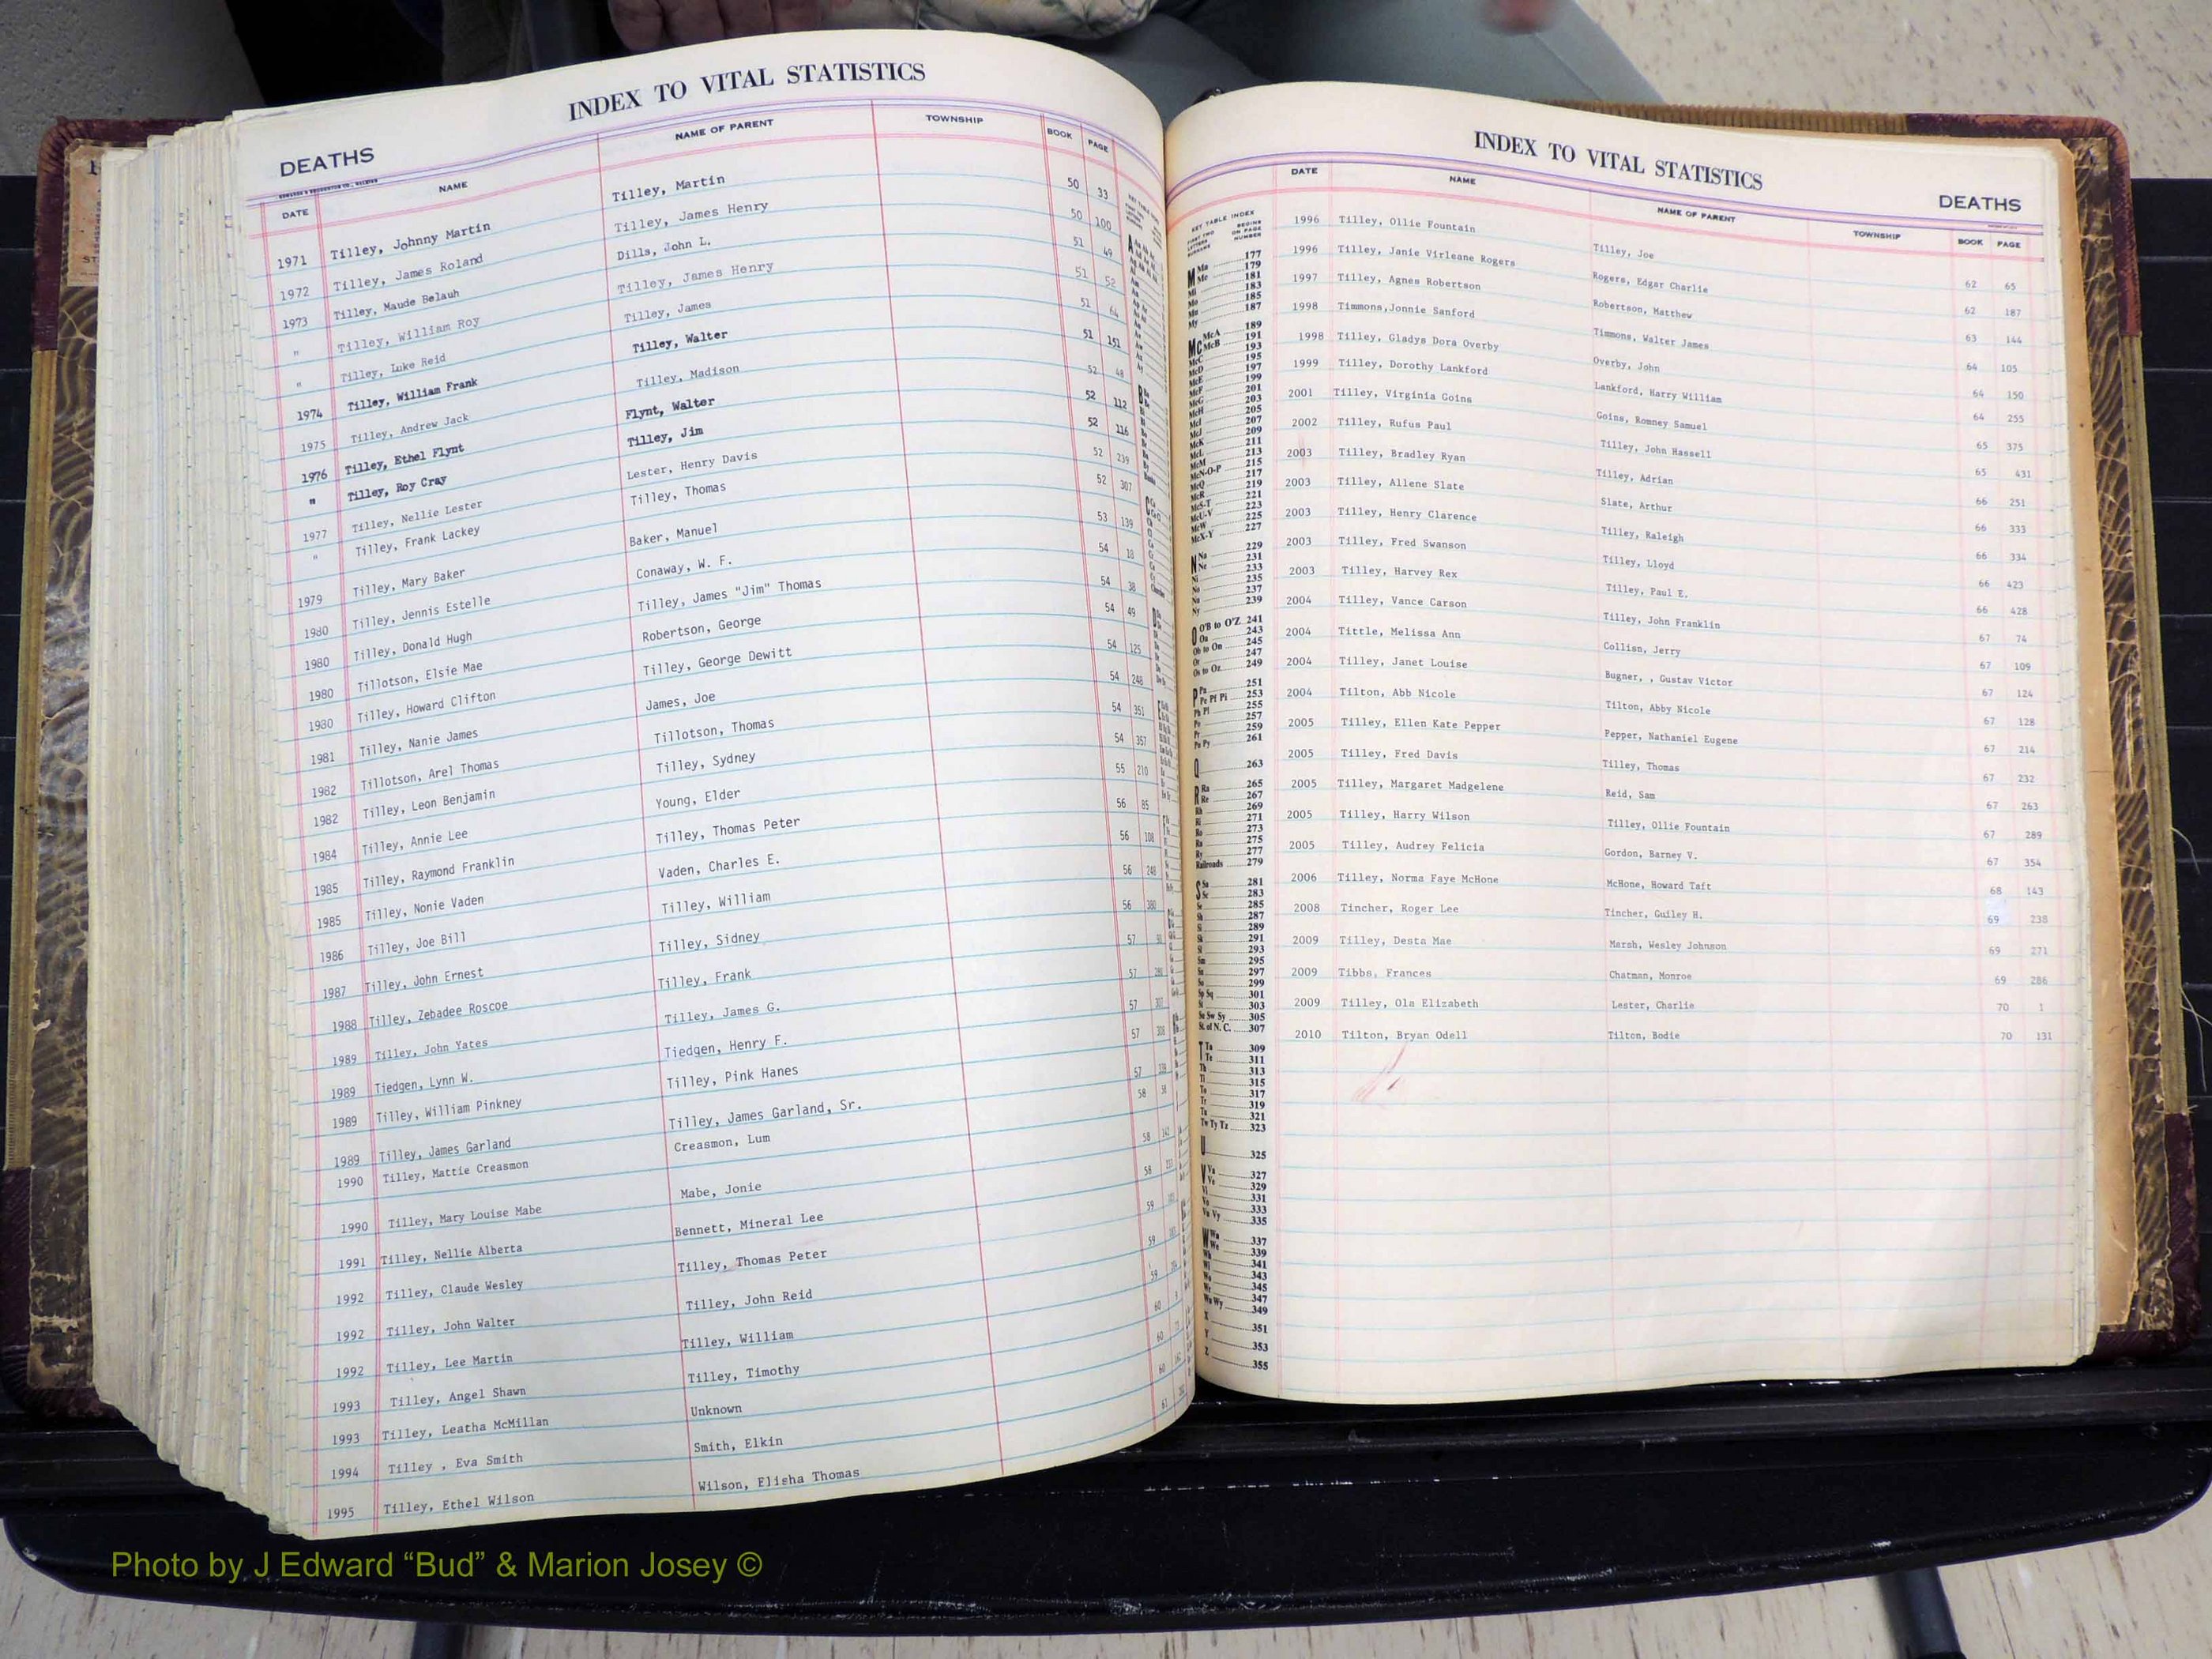 INDEX TO VITAL STATISTICS
DEATHS
DATE NAME NAME OF PARENT TOWNSHIP BOOK PAGE
1971 Tilley, Johnny Martin Tilley, Martin 50 33
1972 Tilley, James Roland Tilley, James Henry 50 100
1973 Tilley, Maude Belauh Dills, John L. 51 49
" Tilley, William Roy Tilley, James Henry 51 52
" Tilley, Luke Reid Tilley, James 51 64
1974 Tilley, William Frank Tilley, Walter 51 151
1975 Tilley, Andrew Jack Tilley, Madison 52 48
1976 Tilley, Ethel Flynt Flynt, Walter 52 112
" Tilley, Roy Cray Tilley, Jim 52 116
1977 Tilley, Nellie Lester Lester, Henry Davis 52 239
" Tilley, Frank Lackey Tilley, Thomas 52 307
1979 Tilley, Mary Baker Baker, Manuel 53 139
1980 Tilley, Jennis Estelle Conaway, W. F. 54 18
1980 Tilley, Donald Hugh Tilley, James "Jim" Thomas 54 38
1980 Tillotson, Elsie Mae Robertson, George 54 49
1980 Tilley, Howard Clifton Tilley, George Dewitt 54 125
1981 Tilley, Nanie James James, Joe 54 248
1982 Tillotson, Arel Thomas Tillotson, Thomas 54 351
1982 Tilley, Leon Benjamin Tilley, Sydney 54 357
1984 Tilley, Annie Lee Young, Elder 55 210
1985 Tilley, Raymond Franklin Tilley, Thomas Peter 56 85
1985 Tilley, Nonie Vaden Vaden, Charles E. 56 108
1986 Tilley, Joe Bill Tilley, William 56 248
1987 Tilley, John Ernest Tilley, Sidney 56 380
1988 Tilley, Zebadee Roscoe Tilley, Frank 57
1989 Tilley, John Yates Tilley, James G. 57
1989 Tiedgen, Lynn W. Tiedgen, Henry F. 57
1989 Tilley, William Pinkney Tilley, Pink Hanes 57
1989 Tilley, James Garland Tilley, James Garland, Sr. 57
1990 Tilley, Mattie Creasmon Creasmon, Lum 58
1990 Tilley, Mary Louise Mabe Mabe, Jonie 58
1991 Tilley, Nellie Alberta Bennett, Mineral Lee 58
1992 Tilley, Claude Wesley Tilley, Thomas Peter 59
1992 Tilley, John Walter Tilley, John Reid 59
1992 Tilley, Lee Martin Tilley, William 59
1993 Tilley, Angel Shawn Tilley, Timothy 60
1993 Tilley, Leatha McMillan Unknown 60
1994 Tilley , Eva Smith Smith, Elkin 60
1995 Tilley, Ethel Wilson Wilson, Elisha Thomas 61
INDEX TO VITAL STATISTICS
DEATHS
DATE NAME NAME OF PARENT TOWNSHIP BOOK PAGE
1996 Tilley, Ollie Fountain Tilley, Joe 62 65
1996 Tilley, Janie Virleane Rogers Rogers, Edgar Charlie 62 187
1997 Tilley, Agnes Robertson Robertson, Matthew 63 144
1998 Timmons,Jonnie Sanford Timmons, Walter James 64 105
1998 Tilley, Gladys Dora Overby Overby, John 64 150
1999 Tilley, Dorothy Lankford Lankford, Harry William 64 255
2001 Tilley, Virginia Goins Goins, Romney Samuel 65 375
2002 Tilley, Rufus Paul Tilley, John Hassell 65 431
2003 Tilley, Bradley Ryan Tilley, Adrian 66 251
2003 Tilley, Allene Slate Slate, Arthur 66 333
2003 Tilley, Henry Clarence Tilley, Raleigh 66 334
2003 Tilley, Fred Swanson Tilley, Lloyd 66 423
2003 Tilley, Harvey Rex Tilley, Paul E. 66 428
2004 Tilley, Vance Carson Tilley, John Franklin 67 74
2004 Tittle, Melissa Ann Collisn, Jerry 67 109
2004 Tilley, Janet Louise Bugner, , Gustav Victor 67 124
2004 Tilton, Abb Nicole Tilton, Abby Nicole 67 128
2005 Tilley, Ellen Kate Pepper Pepper, Nathaniel Eugene 67 214
2005 Tilley, Fred Davis Tilley, Thomas 67 232
2005 Tilley, Margaret Madgelene Reid, Sam 67 263
2005 Tilley, Harry Wilson Tilley, Ollie Fountain 67 289
2005 Tilley, Audrey Felicia Gordon, Barney V. 67 354
2006 Tilley, Norma Faye McHone McHone, Howard Taft 68 143
2008 Tincher, Roger Lee Tincher, Guiley H. 69 238
2009 Tilley, Desta Mae Marsh, Wesley Johnson 69 271
2009 Tibbs, Frances Chatman, Monroe 69 286
2009 Tilley, Ola Elizabeth Lester, Charlie 70 1
2010 Tilton, Bryan Odell Tilton, Bodie 70 131
KEY TABLE INDEX
FIRST TWO LETTERS SURNAME BEGINS ON PAGE NUMBER
M Ma 177
Me 179
Mi 181
183
Mo 185
Mu 187
My
Mc McA 189
McB 191
McC 193
McD 195
McE 197
McF 199
McG 201
McH 203
McI 205
McJ 207
McK 209
McL 211
McM 213
McN-O-P 215
McQ 217
McR 219
McS-T 221
McU-V 223
McW 225
McX-Y 227
N Na 229
Ne 231
Ni 233
No 235
Nu 237
Ny 239
O O'B to O'Z 241
Oa 243
Ob to On 245
Or 247
Os to Oz 249
P Pa 251
Pe Pf Pi 253
Ph Pl 255
Po 257
Pr 259
Pu Py 261
Q 263
R Ra 265
Re 267
Rh 269
Ri 271
Ro 273
Ru 275
Ry 277
Railroads 279
S Sa 281
Sc 283
Se 285
Sh 287
Si 289
Sk 291
Sl 293
Sm 295
Sn 297
So 299
Sp Sq 301
St 303
Su Sw Sy 305
St. of N. C. 307
T Ta 309
Te 311
Th 313
Ti 315
To 317
Tr 319
Tu 321
Tw Ty Tz 323
U 325
V Va 327
Ve 329
Vi 331
Vo 333
Vu Vy 335
W Wa 337
We 339
Wh 341
Wi 343
Wo 345
Wr 347
Wu Wy 349
X 351
Y 353
Z 355
Photo by J Edward “Bud” & Marion Josey ©